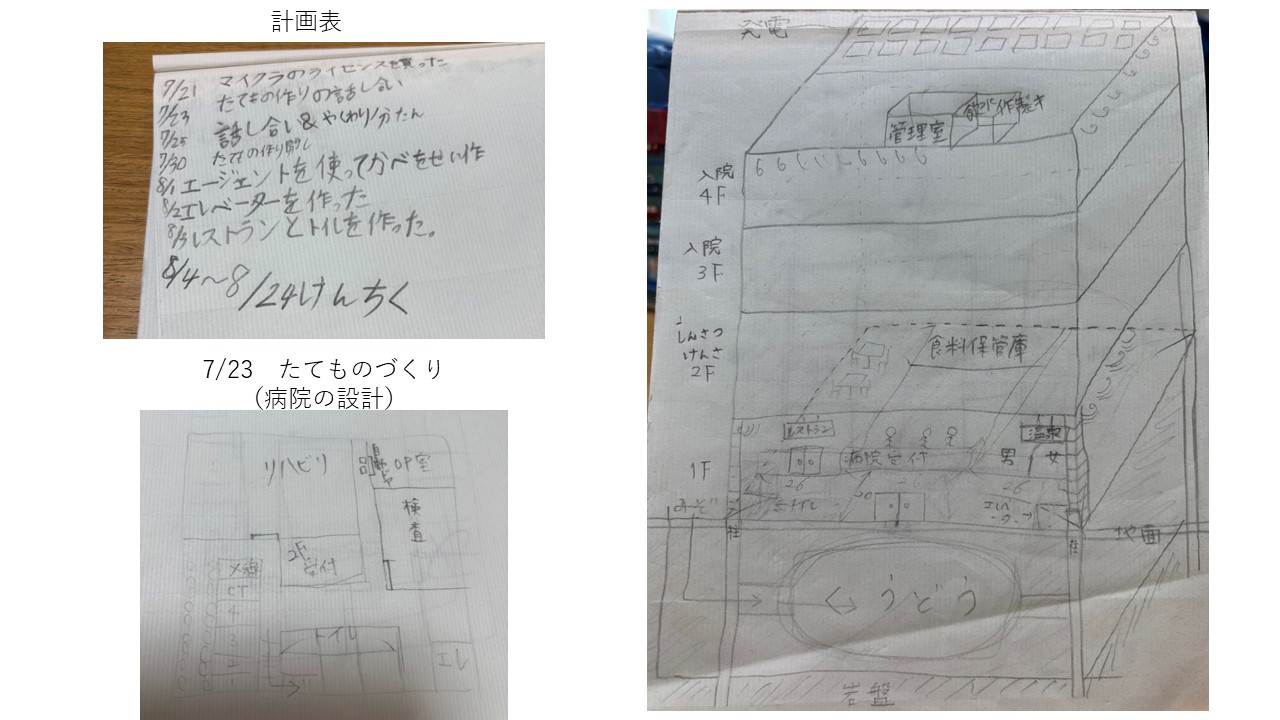 計画表
7/21 マイクラのライセンスを買った
7/23 たてもの作りの話し合い
7/25 話し合い&やくわり分たん
7/30 たてもの作り開し
8/1 エージェントを使ってかべをせい作
8/2 エレベーターを作った
8/3 レストランとトイレを作った。
8/4〜8/24けんちく
7/23 たてものづくり
(病院の設計)
リハビリ
自動ドア
OP室
検査
2F
受付
X線
CT
4
3
2
1
トイレ
エレ
発電
管理室
入院
4F
入院
3F
しんさつ
けんさ
2F
食料保管庫
レストラン
温泉
1F
病院受付
男 女
26 26 26
みぞ
トイレ
20
エレベーター
柱
柱
地面
くうどう
岩盤